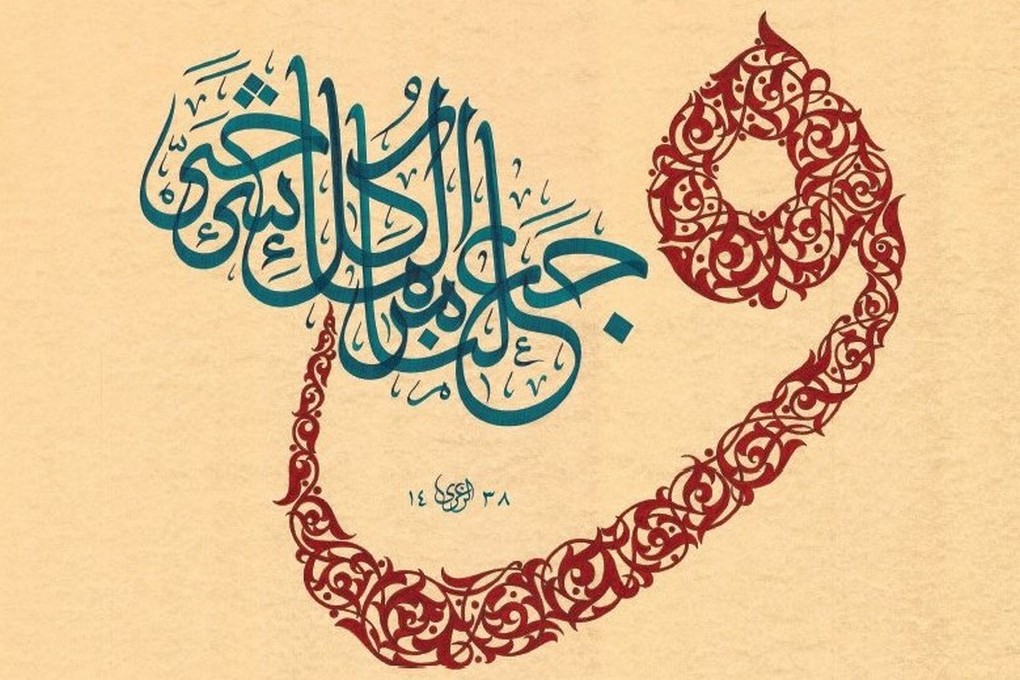 وجعلنا من الماء كل شيء حي
١٤ ٣٨